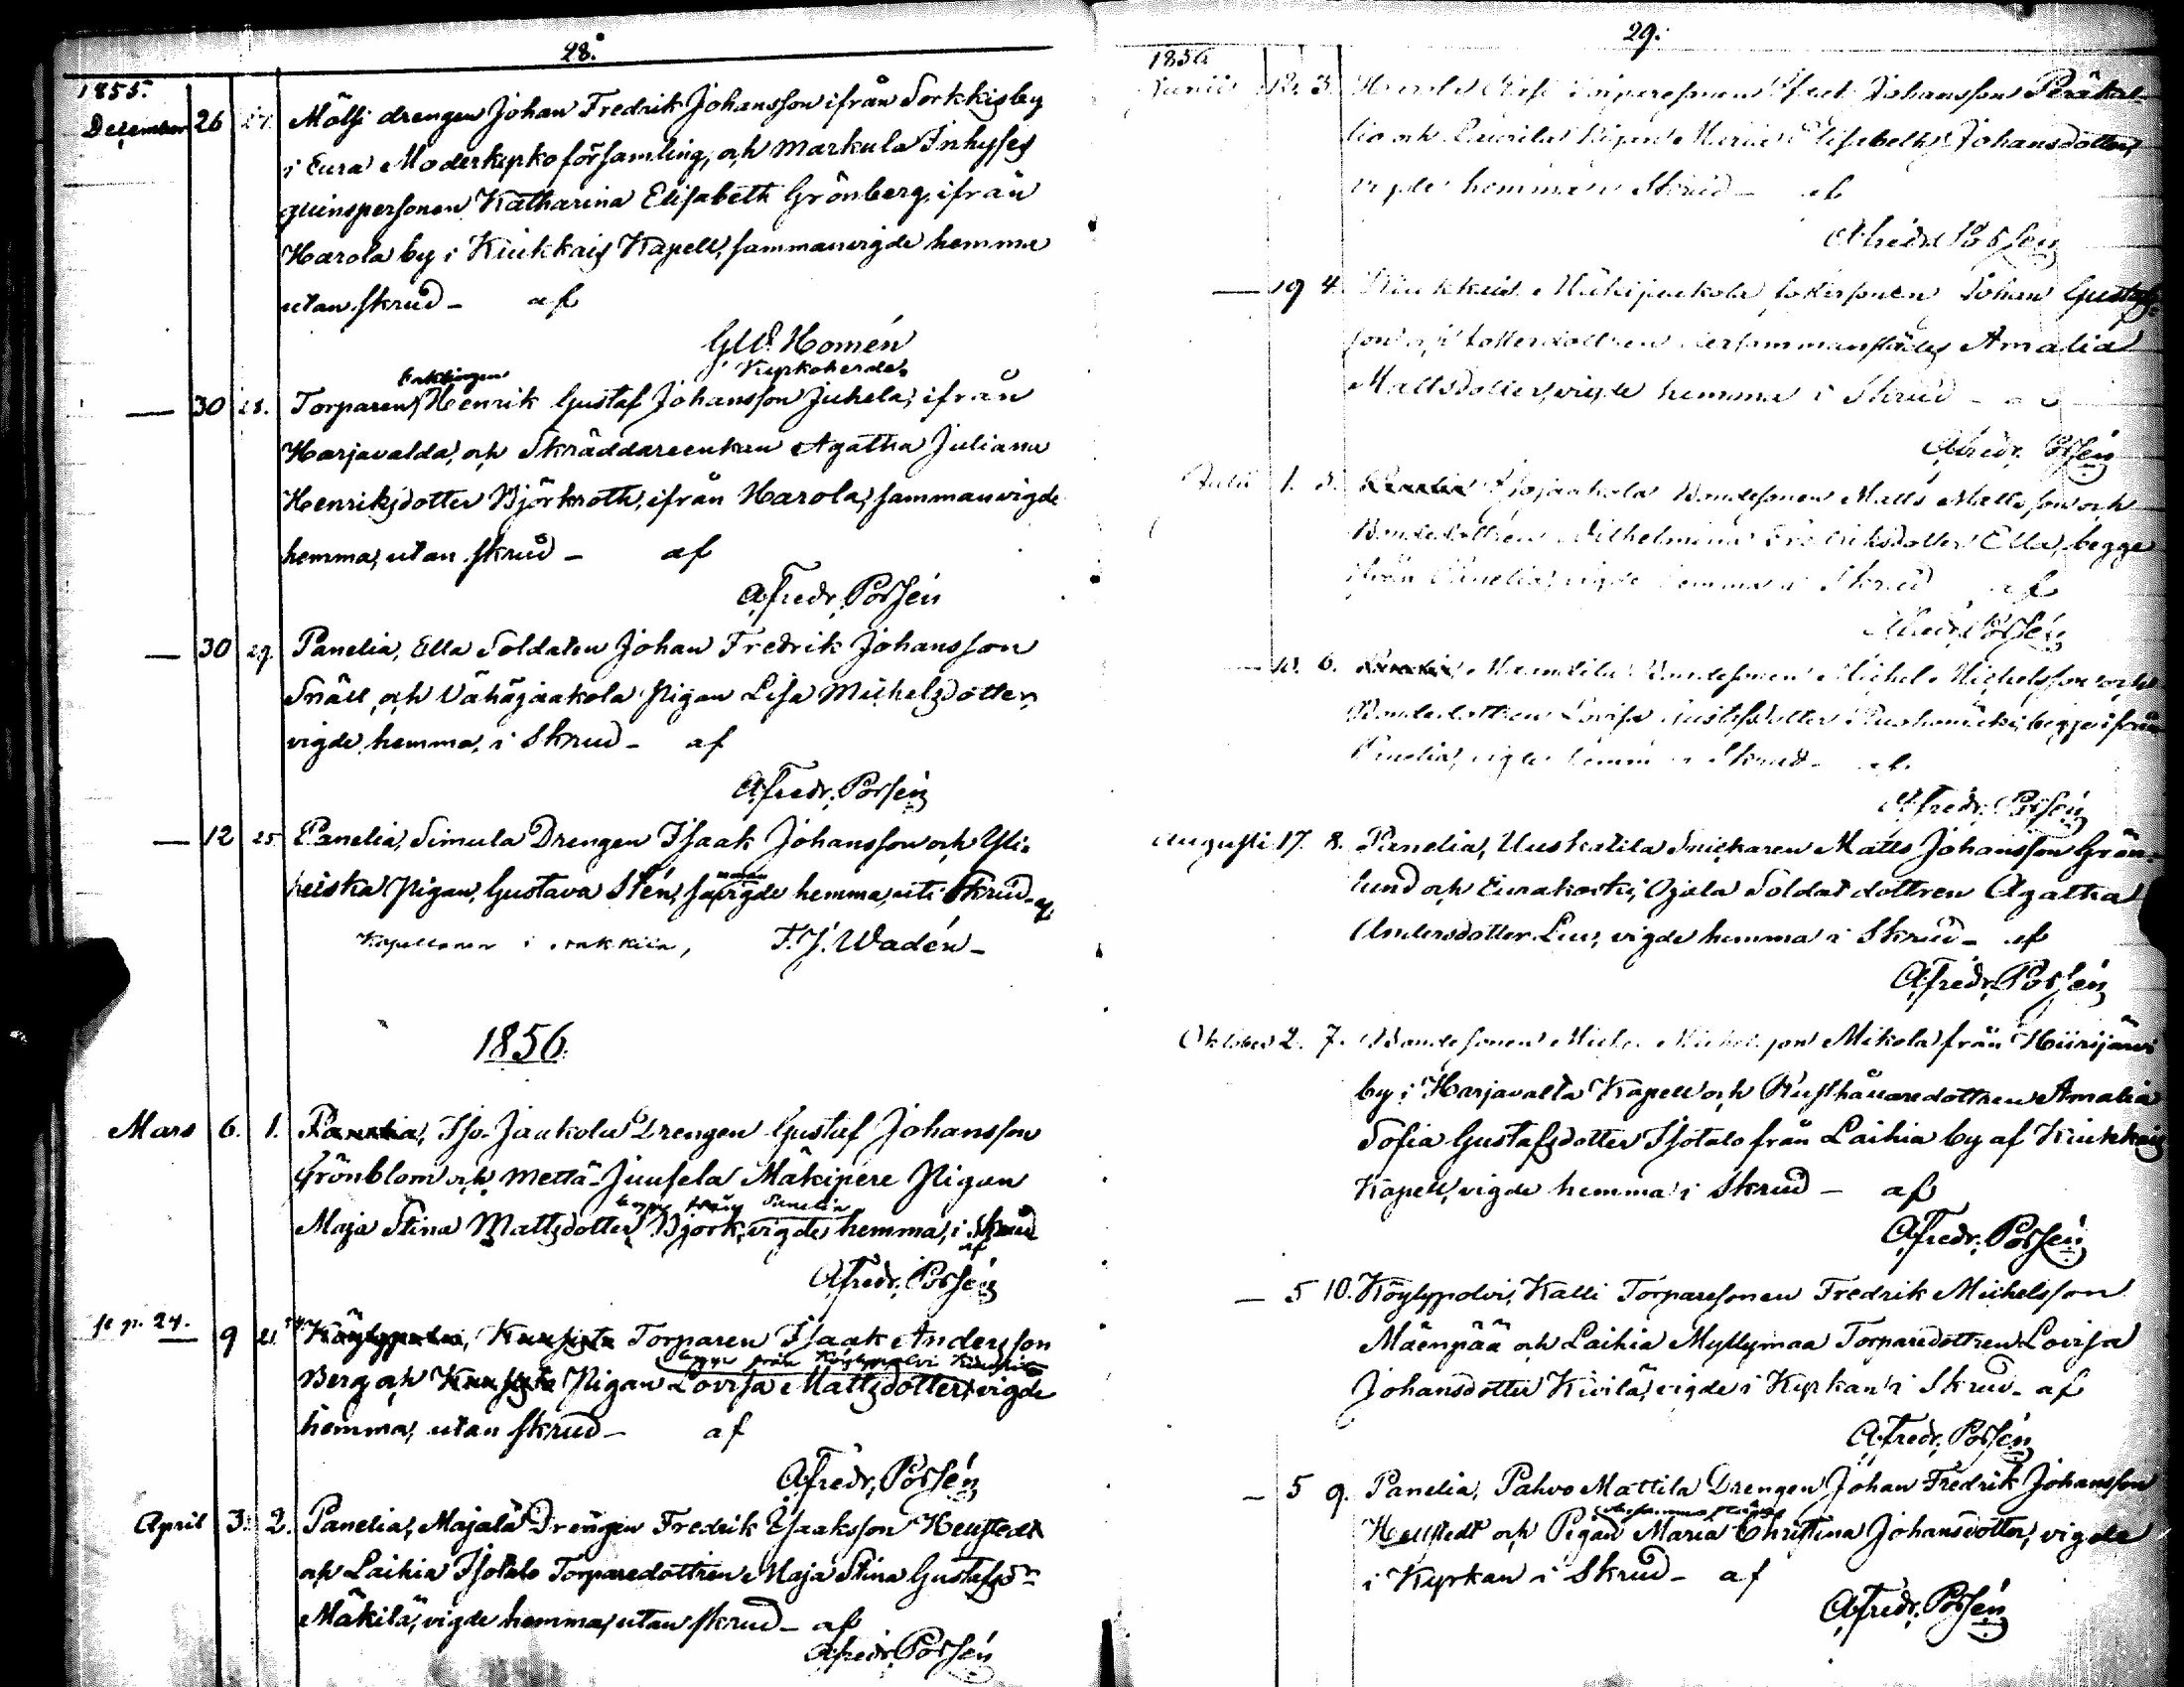 28.
1855.
December 26 27. Mölsi drengen Johan Fredrik Johansson ifrån Sorkkis by
i Eura Moderkyrko församling, och Markula Inhyses
qvinspersonen Katharina Elisabeth Grönberg, ifrån
Harola by i Kiukkais Kapell, sammanvigde hemma
utan skrud - af
G.W. Homén
Kyrkoherde.
Enklingen
— 30 28. Torparen Henrik Gustaf Johansson Juhela, ifrån
Harjavalda, och Skräddareenkan Agatha Juliana
Henriksdotter Björkroth, ifrån Harola, sammanvigde
hemma, utan skrud - af
A. Fredr. Porsén
— 30 29. Panelia, Ella Soldaten Johan Fredrik Johansson
Snäll, och Vähäjaakola Pigan Lisa Michelsdotter,
vigde hemma, i Skrud - af
A. Fredr. Porsén
— 12 25 Panelia, Simula Drengen Isaak Johansson och Yli-
heiska Pigan, Gustava Stén, sa vigde hemma, uti Skrud - af
Kapellanen i , F.J. Wadén -
1856.
Mars 6. 1. Panelia, Iso-Jaakola Drengen Gustaf Johansson
Grönblom och Mettä-Juusela Mäkipere Pigan
begge från Panelia
Maja Stina Mattsdotter Björk, vigde hemma, i Skrud
af
A. Fredr. Porsén
se p. 24. — 9 Köylypolvi, Kuusisto Torparen Isaak Andersson
begge från Köylypolvi Kuusisto
Berg och Kuusisto Pigan Lovisa Mattsdotter, vigde
hemma, utan skrud - af
A. Fredr. Porsén
April 3. 2. Panelia, Majala Drengen Fredrik Isaksson Hellstedt
och Laihia Isotalo Torparedottren Maja Stina Gustafsdr
Mäkilä, vigde hemma, utan skrud - af
A. Fredr. Porsén
29.
1856
Junii 12. 3. Johansson Peräkal-
lio och Laurila Pigan Maria Elisabeth Johansdotter,
vigde hemma i Skrud - af
A. Fredr. Porsén
— 19 4. Kiukkais Mäkijaakola sonen Johan Gustaf-
son och dottren dersammastädes Amalia
Mattsdotter, vigde hemma i Skrud -
A. Fredr. Porsén
Julii 1. 5. Panelia Isojaakola Bondesonen Matts Mattsson och
Bondedottren Wilhelmina Fredriksdotter Ella, begge
ifrån Panelia, vigde hemma i Skrud af
A. Fredr. Porsén
— 10. 6. Panelia, Bondesonen Michel Michelsson och
Bondedottren Lovisa Gustafsdotter begge ifrån
Panelia, vigde hemma i Skrud - af
A. Fredr. Porsén
Augusti 17. 8. Panelia, Uuskatila Snickaren Matts Johansson Grön-
lund och Eurakoski, Ojala Soldat dottren Agatha
Andersdotter Lius, vigde hemma i Skrud - af
A. Fredr. Porsén
Oktober 2. 7. Bondesonen Michel Michelsson Mikola från Hiirijärvi
by i Harjavalta Kapell och Rusthållaredottren Amalia
Sofia Gustafsdotter Isotalo från Laihia by af Kiukkais
Kapell, vigde hemma i Skrud - af
A. Fredr. Porsén
— 5 10. Köylypolvi, Kalli Torparesonen Fredrik Michelsson
Mäenpää och Laihia Myllymaa Torparedottren Lovisa
Johansdotter Kivilä, vigde i Kyrkan i Skrud - af
A. Fredr. Porsén
— 5 9. Panelia, Pahvo Mattila Drengen Johan Fredrik Johansson
Hellstedt och Pigan Maria Christina Johansdotter, vigde
i Kyrkan i Skrud - af
A. Fredr. Porsén